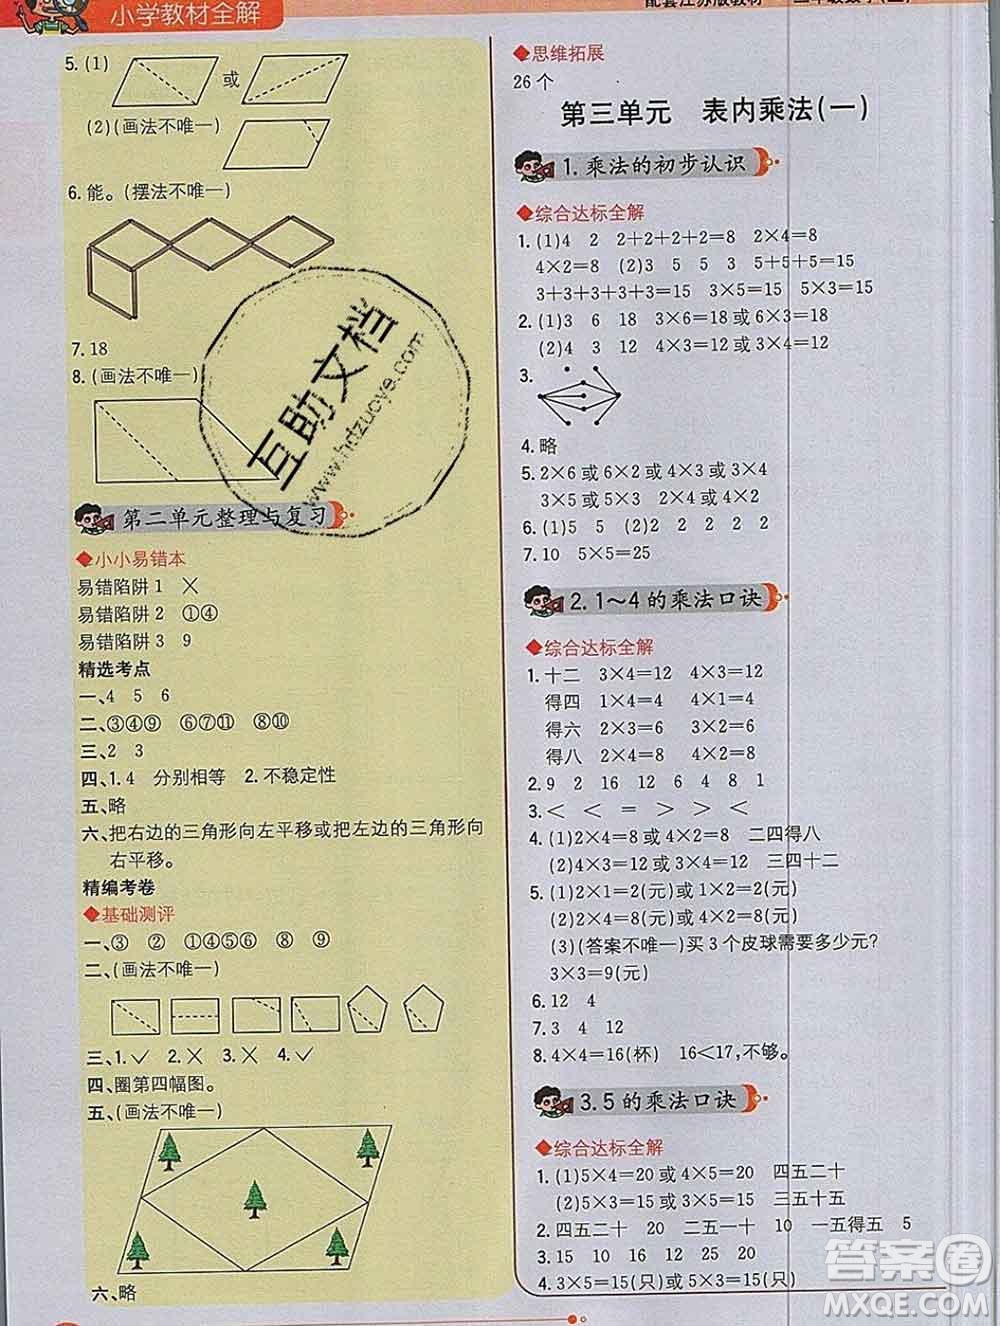 小学教材全解
5.(1) 或
(2)(画法不唯一)
6.能。(摆法不唯一)
7.18
8.(画法不唯一)
第二单元整理与复习
◆小小易错本
易错陷阱1 ×
易错陷阱2 ①④
易错陷阱3 9
精选考点
一、4 5 6
二、③④⑨ ⑥⑦⑪ ⑧⑩
三、2 3
四、1.4 分别相等 2.不稳定性
五、略
六、把右边的三角形向左平移或把左边的三角形向
右平移。
精编考卷
◆基础测评
一、③ ② ①④⑤⑦ ⑧ ⑨
二、(画法不唯一)
三、1.✓ 2.× 3.× 4.✓
四、圈第四幅图。
五、(画法不唯一)
六、略
配套江苏版教材
◆思维拓展
26个
第三单元 表内乘法(一)
1.乘法的初步认识
◆综合达标全解
1.(1)4 2 2+2+2+2=8 2×4=8
4×2=8 (2)3 5 5 3 5+5+5=15
3+3+3+3+3=15 3×5=15 5×3=15
2.(1)3 6 18 3×6=18或6×3=18
(2)4 3 12 4×3=12或3×4=12
3.
4.略
5.2×6或6×2或4×3或3×4
3×5或5×3 5×5
6.(1)5 5 (2)2 2 2 2 2
7.10 5×5=25
2.1~4的乘法口诀
◆综合达标全解
1.十二 3×4=12 4×3=12
得四 1×4=4 4×1=4
得六 2×3=6 3×2=6
得八 2×4=8 4×2=8
2.9 2 16 12 6 4 8 1
3.< < = > > >
4.(1)2×4=8或4×2=8 二四得八
(2)4×3=12或3×4=12 三四十二
5.(1)2×1=2(元)或1×2=2(元)
(2)2×4=8(元)或4×2=8(元)
(3)(答案不唯一)买3个皮球需要多少元?
3×3=9(元)
6.12 4
7.3 4 12
8.4×4=16(杯) 16<17,不够。
3.5的乘法口诀
◆综合达标全解
1.(1)5×4=20或4×5=20 四五二十
(2)5×3=15或3×5=15 三五十五
2.四五二十 20 二五一十 10 一五得五 5
3.15 10 16 12
4.3×5=15(只)或5×3=15(只)
互助文档
www.hdzuoye.com
答案圈
MXQE.COM